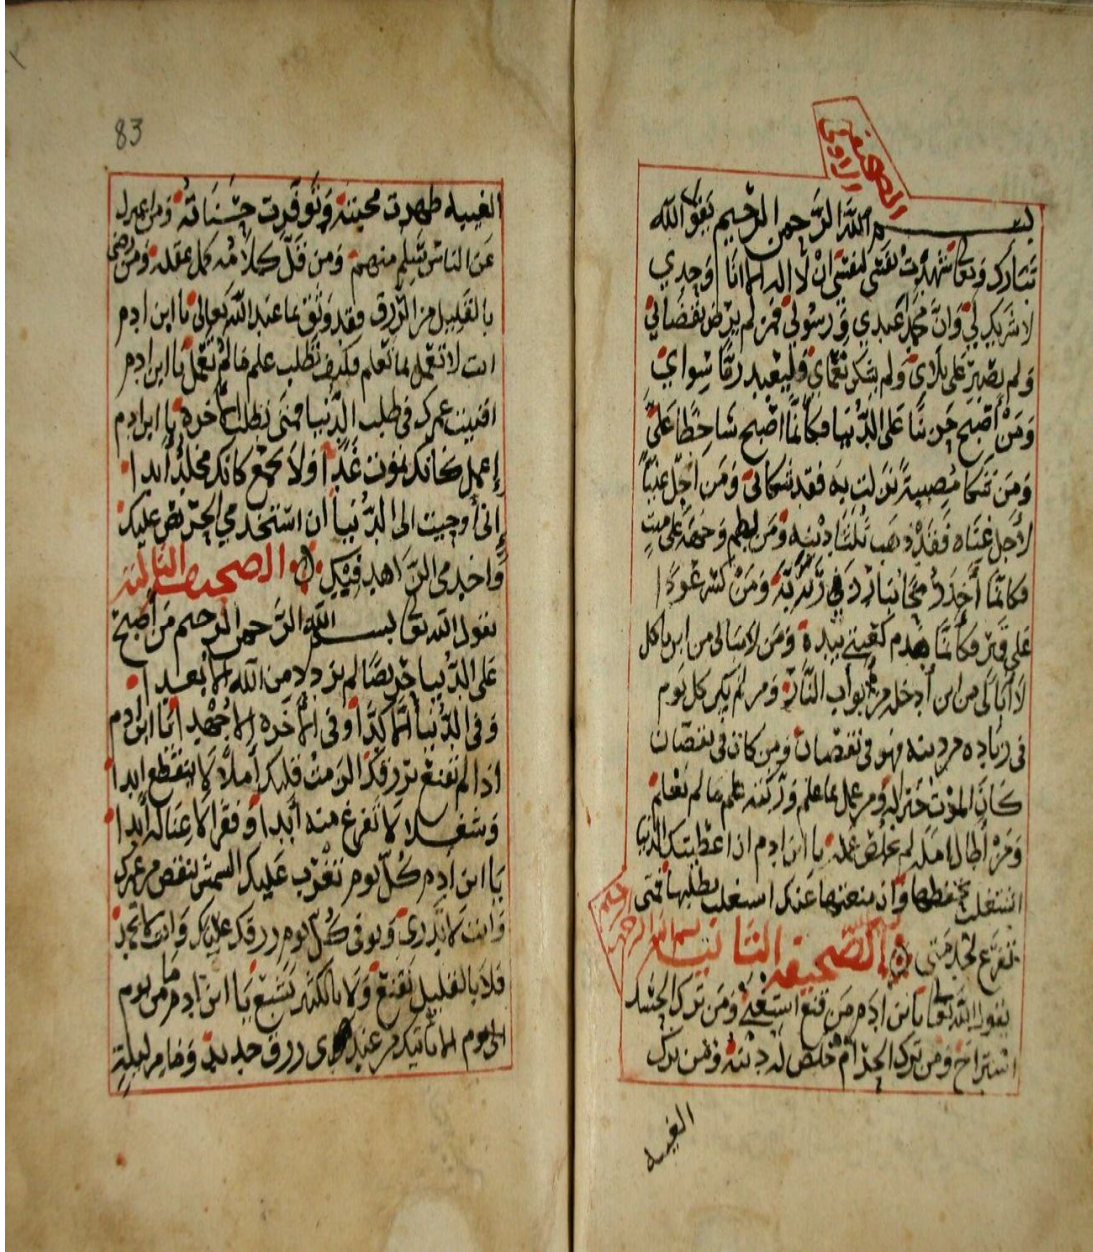 الصحيفة الاولى
بسم الله الرحمن الرحيم يقول الله
تبارك وتعالى شهدت نفسي لنفسي ان لا اله الا انا وحدي
لا شريك لي وان محمد عبدي ورسولي فمن لم يرض بقضائي
ولم يصبر على بلائي ولم يشكر نعمائي فليعبد ربا سوائي
ومن أصبح حزينا على الدنيا فكأنما اصبح ساخطا على
ومن شكا مصيبة نزلت به فقد شكاني ومن
لاجل غناه فقد ذهب ثلثا دينه ومن لطم وجهه على ميت
فكانما أخذ
على قبر فكأنما هدم كعبتي بيده ومن لا يبالي من اين ياكل
لا أبالي من اين أدخله من أبواب النار ومن لم يكن كل يوم
في زياده من دينه فهو في نقصان ومن كان في نقصان
كان الموت خير له ومن عمل بما علم ورثته علم ما لم يعلم
ومن أطال امله لم يخلص عمله يا ابن ادم اذا اعطيتك الدنيا
اشتغلت بحفظها وان منعتها عنك اشتغلت بطلبها فمتى
تفرغ لخدمتي الصحيفة الثانيه بسم الله الرحمن الرحيم
يقول الله تعالى يا ابن ادم من قنع استغنى ومن ترك الحسد
استراح ومن ترك الحرام خلص له دينه ومن ترك
الغيبه
83
الغيبه ظهرت محبته وتوفرت حسناته ومن اعتزل
عن الناس سلم منهم ومن قل كلامه كمل عقله ومن رضى
بالقليل من الرزق فقد وثق بما عند الله تعالى يا ابن ادم
انت لا تعمل بما تعلم فكيف تطلب علم ما لم تعمل يا ابن ادم
افنيت عمرك في طلب الدنيا فمتى تطلب الاخره يا ابن ادم
إعمل كانك تموت غدا ولا تجمع كانك مخلد أبدا
إني أوحيت الى الدنيا ان استخدمي الحريص عليك
واخدمي الزاهد فيك الصحيفه الثالثه
يقول الله تعالى بسم الله الرحمن الرحيم من أصبح
على الدنيا حريصا لم يزدد من الله الا بعدا
وفي الدنيا الا كدا وفي الاخره الا جهدا يا ابن ادم
اذا لم تقنع برزقك الزمت قلبك أملا لا ينقطع ابدا
وشغلا لا تفرغ منه أبدا وفقرا لا غنا له أبدا
يا ابن ادم كل يوم تغرب عليك الشمس ينقص من عمرك
وانت لا تدري ويوفى كل يوم رزقك عليك وانت لا تحمد
فلا بالقليل تقنع ولا بالكثير تشبع يا ابن ادم ما من يوم
الى يوم الا يأتيك من عندي رزق جديد وما من ليلة